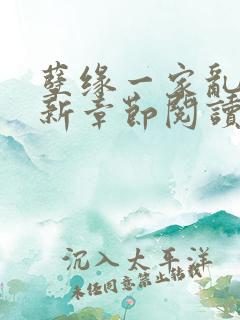 孽缘一家乱
新章节阅读
沉入太平洋
未经同意禁止转载